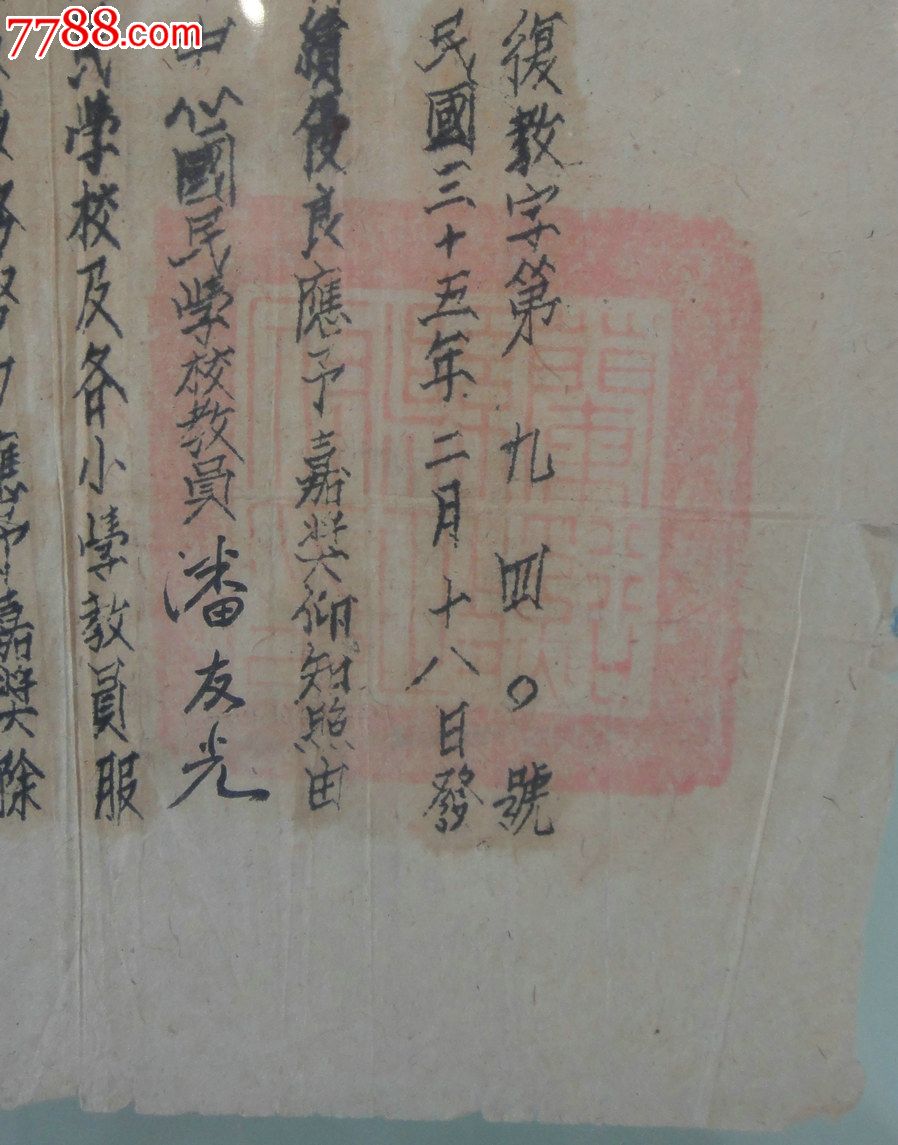 7788.com
復教字第九四〇號
民國三十五年二月十八日發
績優良應予嘉獎仰知照由
中心國民學校教員潘友光
民學校及各小學教員服
應予嘉獎除